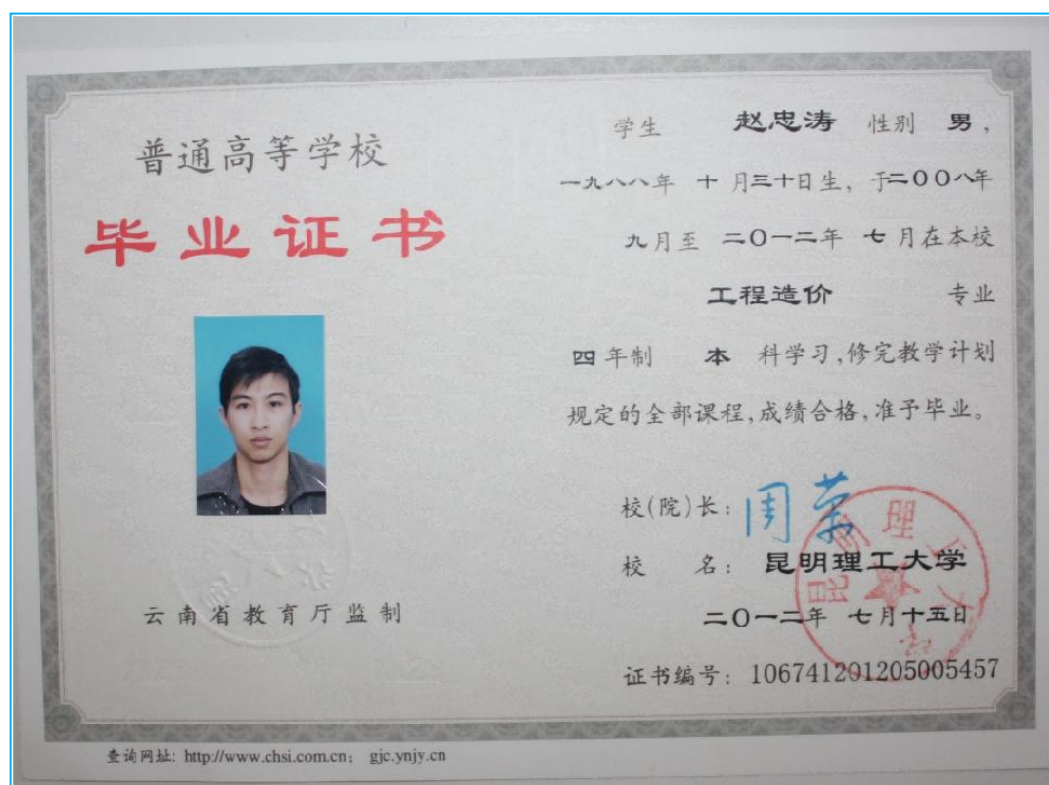 普通高等学校
毕业证书
云南省教育厅监制
学生 赵忠涛 性别 男,
一九八八年 十 月三十日生, 于二〇〇八年
九月至 二〇一二年 七月在本校
工程造价 专业
四年制 本 科学习,修完教学计划
规定的全部课程,成绩合格,准予毕业。
校(院)长: 周荣
校 名: 昆明理工大学
昆明理工大学
二〇一二年 七月十五日
证书编号: 106741201205005457
查询网址: http://www.chsi.com.cn; gjc.ynjy.cn